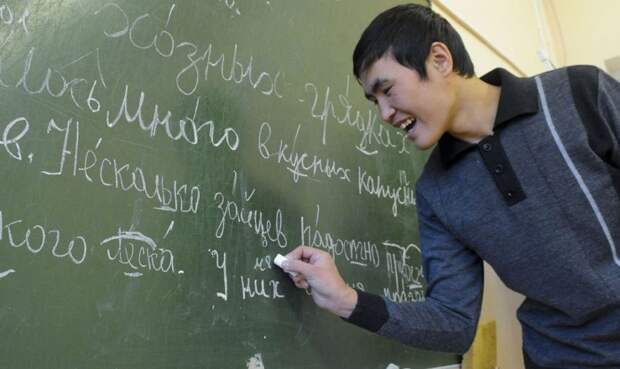 грядках
лось много вкусных капустн
в. Несколько зайцев радостно
кого леска. У них